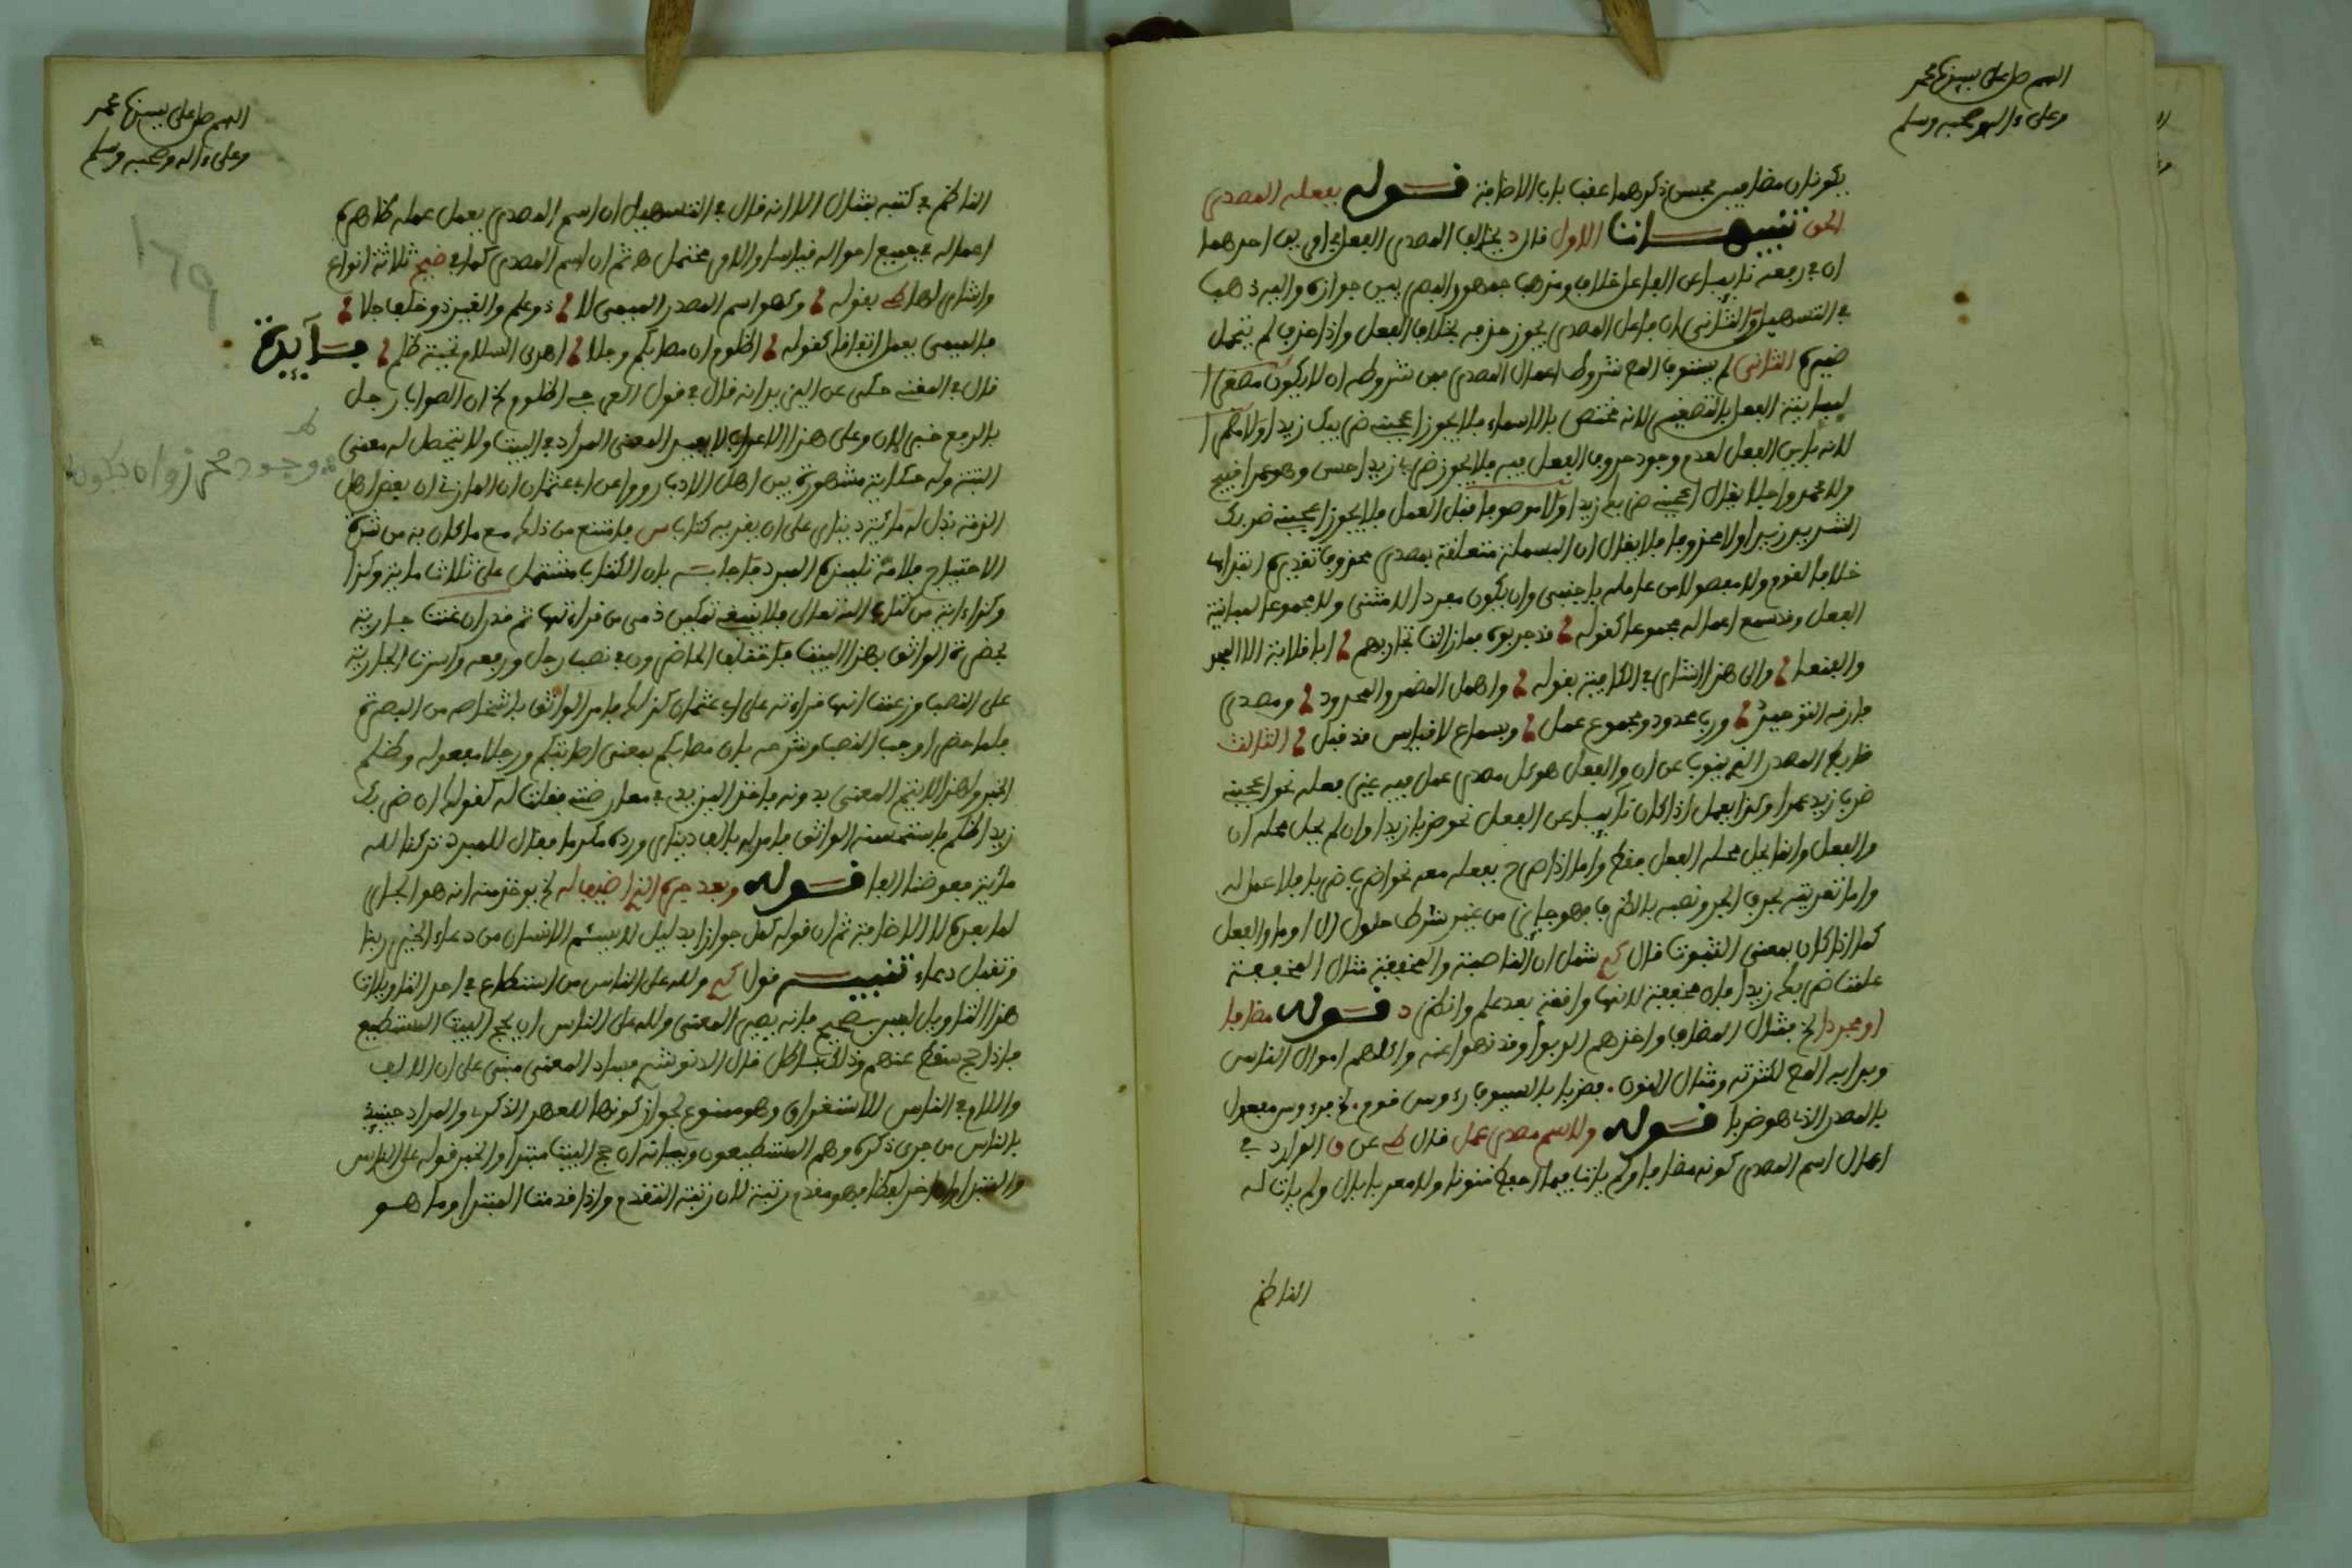 اللهم صل على سيدنا محمد
وعلى ءاله وصحبه وسلم
يكونان مضافين محسن ذكرهما عقب باب الاضافة قوله بفعله المصدر
الحق تنبيهات الاول قال د يخالف المصدر الفعل في امرين احدهما
ان في رفعه نائبا عن الفاعل خلافا ومذهب جمهور البصريين جوازه واليه ذهب
في التسهيل والثاني ان فاعل المصدر يجوز حذفه بخلاف الفعل واذا حذف لم يتحمل
ضميره الثاني لم يستوف المص شروط اعمال المصدر فمن شروطه ان لا يكون مصغرا
لمباينته الفعل بالتصغير لانه مختص بالاسماء فلا يجوز اعجبني ضريبك زيدا ولا مضمرا
لانه باين الفعل لعدم وجود حروف الفعل فيه فلا يجوز ضربي زيدا حسن وهو عمرا قبيح
ولا محدودا فلا يقال اعجبني ضربتك زيدا ولا موصوفا قبل العمل فلا يجوز اعجبني ضربك
الشديد زيدا ولا محذوفا فلا يقال ان البسملة متعلقة بمصدر محذوف تقديره ابتدائي
خلافا لقوم ولا مفصولا من عامله باجنبي وان يكون مفردا لا مثنى ولا مجموعا لمباينة
الفعل وقد سمع اعماله مجموعا كقوله قد جربوه فما زالت تجاربهم ابا قدامة الا المجد
والفنعا والى هذا اشار في الكافية بقوله واهمل المضمر والمحدود ومصدر
فارقه التوحيد ورب محدود ومجموع عمل وبسماع لا قياس قد قبل الثالث
ضابط المصدر الذي ينوب عن ان والفعل هو كل مصدر عمل فيه غير فعله نحو اعجبني
ضرب زيد عمرا وكذا يعمل اذا كان نائبا عن الفعل نحو ضربا زيدا وان لم يحل محله ان
والفعل وانما يحل محله الفعل فقط واما اذا صرح بفعله معه نحو اضرب ضربا فلا عمل له
واما تعديته بحرف الجر ونصبه بالظرف فهو جائز من غير شرط حلول ان او ما والفعل
كما اذا كان بمعنى الثبوت قال شمل ان الناصبة والمخففة مثال المخففة
علمت ضربك زيدا فان مخففة لانها واقعة بعد علم وانظر د قوله مضافا
او مجردا الخ مثال المضاف واخذهم الربوا وقد نهوا عنه واكلهم اموال الناس
وبدا به المص لكثرته ومثال المنون فضربا بالسيوف رءوس قوم الخ فرءوس مفعول
بالمصدر الذي هو ضربا قوله ولاسم مصدر عمل قال عن ق الوارد في
اعمال اسم المصدر كونه مضافا ولم يات فيما احفظ منونا ولا معرفا بال ولم يات له
الناظم
اللهم صل على سيدنا محمد
وعلى ءاله وصحبه وسلم
179
الناظم في كتبه بمثال الا انه قال في التسهيل ان اسم المصدر يعمل عمله فظاهره
اعماله في جميع احواله قياسا والامر محتمل ثم ان اسم المصدر كما في ضيح ثلاثة انواع
واشار لها بقوله وكهو اسم المصدر الميمي لا ذو علم والغير ذو خلف جلا
فالميمي يعمل اتفاقا كقوله اظلوم ان مصابكم رجلا اهدى السلام تحية ظلم فآئدة
قال في المغني حكى عن اليزيدي انه قال في قول العرجي اظلوم الخ ان الصواب رجل
بالرفع خبر لان وعلى هذا الاعراب لا يفسد المعنى المراد في البيت ولا يتحصل له معنى
البتة وله حكاية مشهورة بين اهل الادب رووا عن ابي عثمان المازني ان بعض اهل
الذمة بذل له مائة دينار على ان يقريه كتاب س فامتنع من ذلك مع ما كان به من شدة
الاحتياج فلامه تلميذه المبرد فاجابه بان الكتاب مشتمل على ثلاث مائة وكذا
وكذا ءاية من كتاب الله تعالى فلا ينبغي تمكين ذمي من قراءتها ثم قدر ان غنت جارية
بحضرة الواثق بهذا البيت فاختلف الحاضرون في نصب رجل ورفعه واصرت الجارية
على النصب وزعمت انها قراته على ابي عثمان كذلك فامر الواثق باشخاصه من البصرة
فلما حضر اوجب النصب وشرحه بان مصابكم بمعنى اصابتكم ورجلا مفعوله وظلم
الخبر ولهذا لا يتم المعنى بدونه فاخذ اليزيدي في معارضتي فقلت له كقولك ان ضربك
زيدا ظلم فاستحسنه الواثق فامر له بالف دينار ورده مكرما فقال للمبرد تركنا لله
مائة فعوضنا الفا قوله وبعد جره الذي اضيف له الخ يوخذ منه انه هو الجار
لما بعده لا الاضافة ثم ان قوله كمل جوازا بدليل لا يسئم الانسان من دعاء الخير ربنا
وتقبل دعاء تنبيه قول ولله على الناس من استطاع في احد التاويلات
هذا التاويل ليس بصحيح فانه يصير المعنى ولله على الناس ان يحج البيت المستطيع
فاذا حج سقط عنهم وذلك باطل قال الدنوشري فساد المعنى مبني على ان الالف
واللام في الناس للاستغراق وهو ممنوع لجواز كونها للعهد الذكري والمراد حينئذ
بالناس من جرى ذكره وهم المستطيعون وبيانه ان حج البيت مبتدا والخبر قوله على الناس
والمبتدا وان تاخر لفظا فهو مقدم رتبة لان رتبته التقدم واذا قدمت المبتدا وما هو